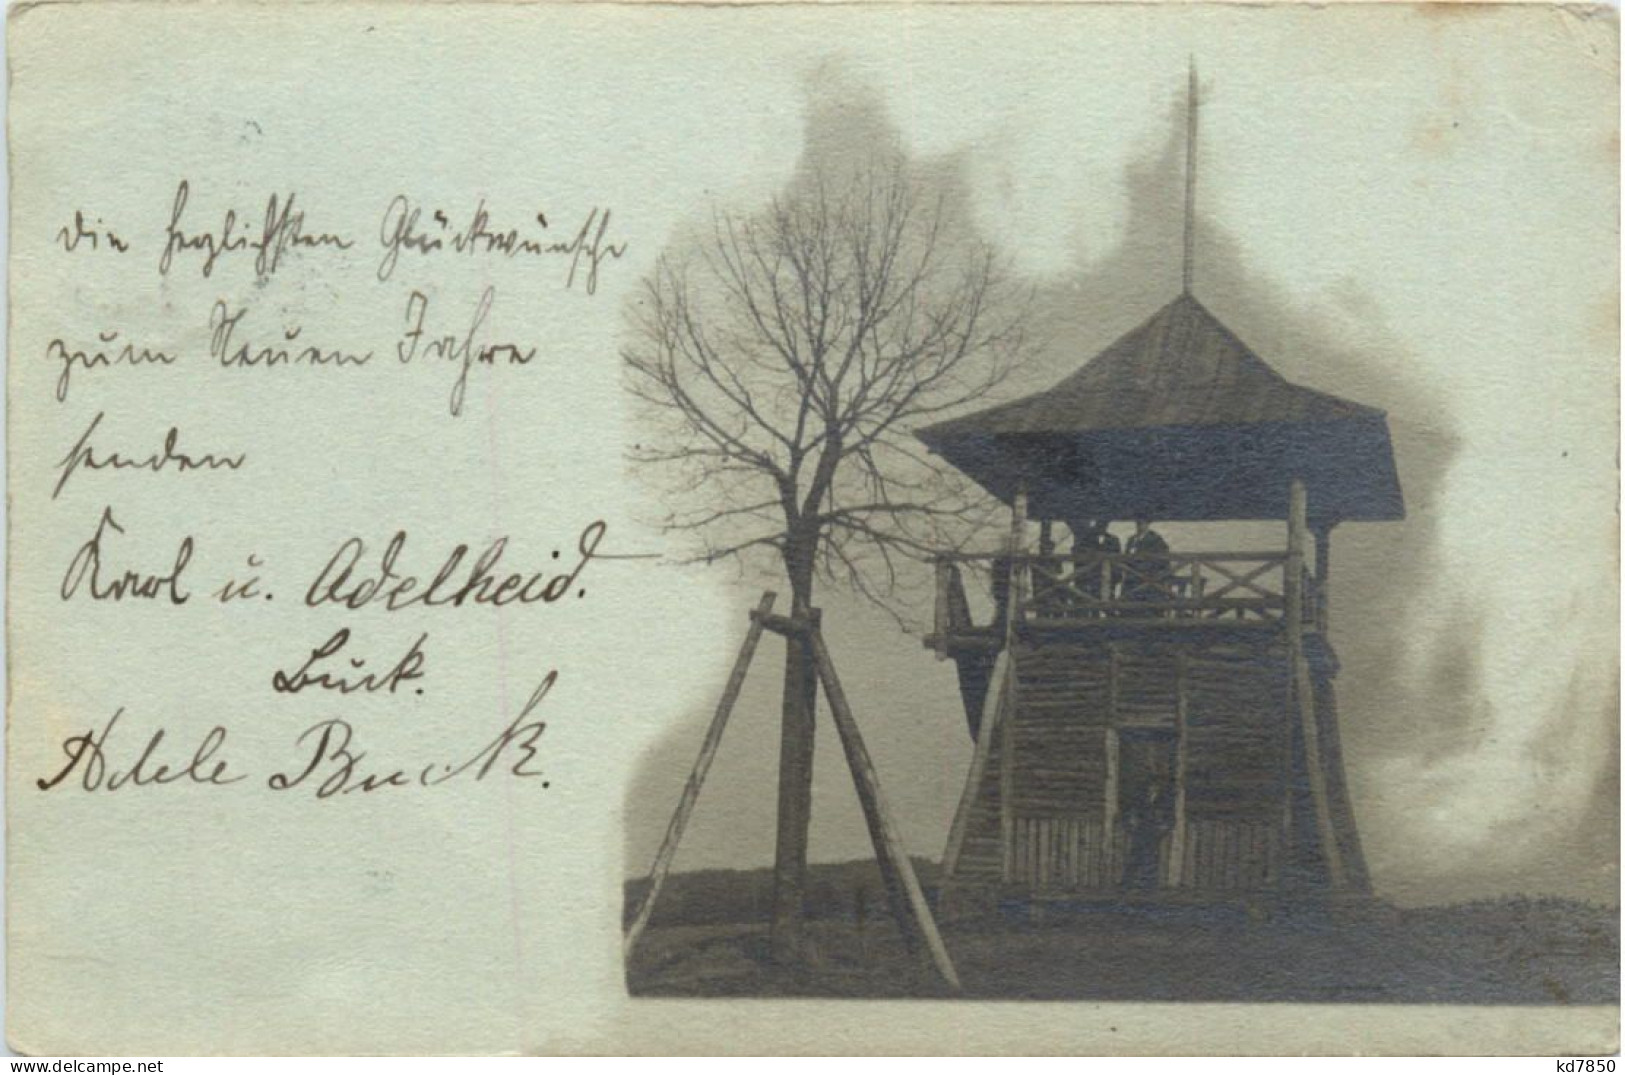 die herzlichsten Glückwünsche
zum Neuen Jahre
senden
Karl u. Adelheid.
Buck.
Adele Buck.
www.delcampe.net
kd7850